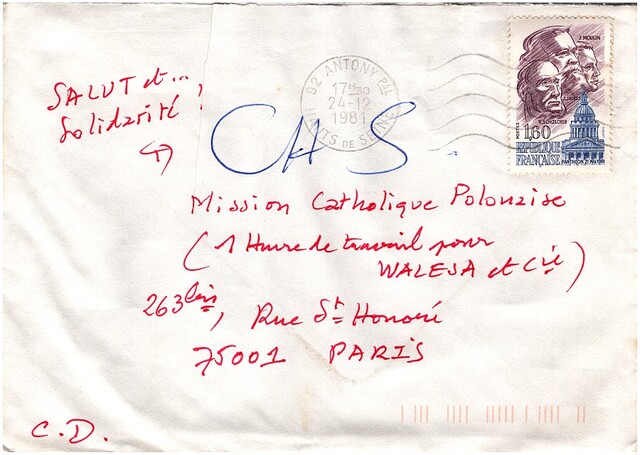 SALUT et... !
Solidarité
92 ANTONY PAL
17H30
24-12
1981
HAUTS DE SEINE
J. MOULIN
J. JAURES
V. SCHOELCHER
POSTES 1,60
REPUBLIQUE
FRANÇAISE
PANTHEON 21 MAI 1981
CHS.
Mission Catholique Polonaise
(1 Heure de travail pour
WALESA et Cie)
263 bis, Rue St Honoré
75001 PARIS
C.D.